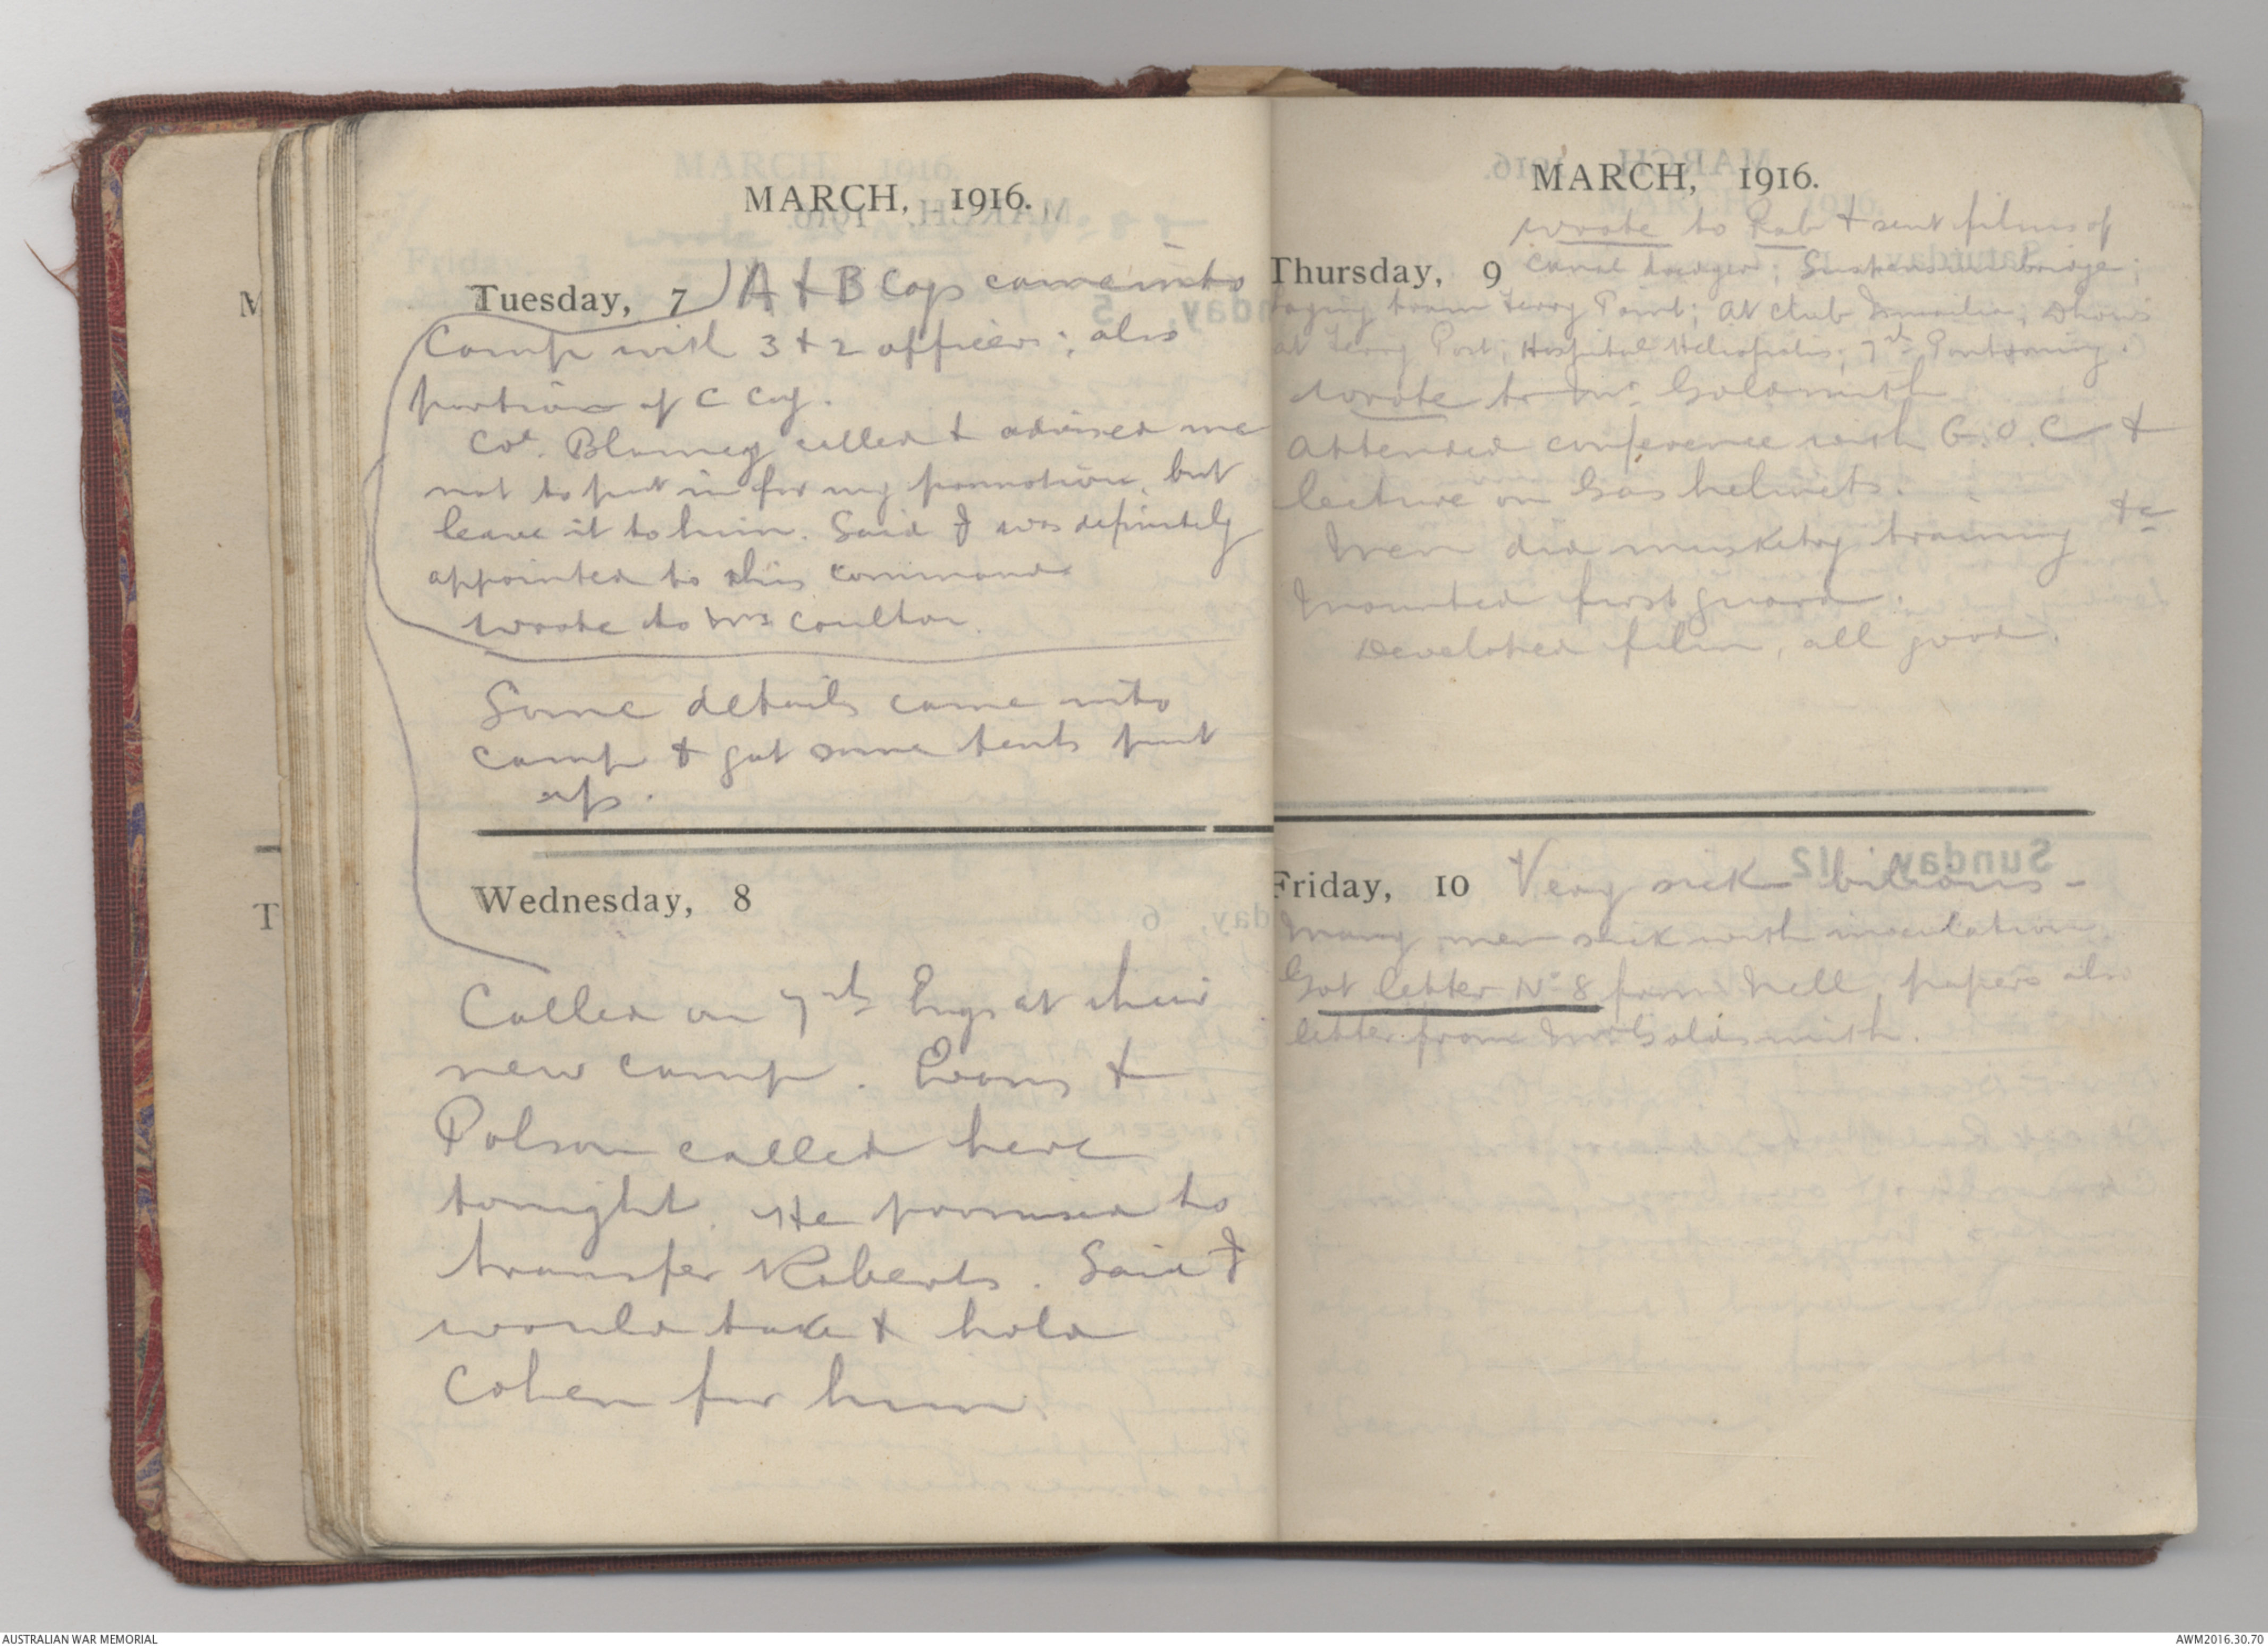 MARCH, 1916.
Tuesday, 7 A & B Coys came into
Camp with 3 & 2 officers; also
portion of C Coy.
Col. Blamey called & advised me
not to put in for my promotion, but
leave it to him. Said I was definitely
appointed to this command
wrote to Mrs Coulton.
Some details came into
camp & got some tents put
up.
Wednesday, 8
Called on 7th Engs at their
new camp. Evans &
Polson called here
tonight. He promised to
transfer Roberts. Said I
would take & hold
Cohen for him
MARCH, 1916.
wrote to Rob & sent films of
Thursday, 9 Canal dredger; Suspension bridge;
from Ferry Point; At Club Ismailia; Dhows
at Ferry Post; Hospital Heliopolis; 7th Pontooning.
wrote to Mr Goldsmith
Attended conference with G.O.C &
lecture on Gas helmets.
Men did musketry training &c
Mounted first guard.
Developed film, all good.
Friday, 10 Very sick bilious -
Many men sick with inoculation.
Got letter No 8 from Nell, papers also
letter from Mr Goldsmith.
AUSTRALIAN WAR MEMORIAL
AWM2016.30.70